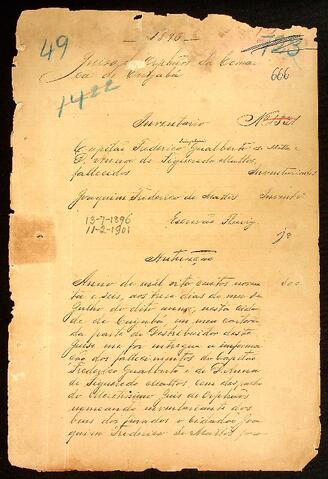 — 1896 —
49
723
666
Juizo de Orphãos da Comar
ca de Cuyabá
1422
Inventario
Nº
Capitão Frederico Gualberto de Mattos e
D. Anna de Figueredo Mattos,
fallecidos
Inventariados
Joaquim Frederico de Mattos
Invente
13-7-1896
11-2-1901
Escrivão
Autuação
Anno de mil oito centos noven
ta e seis, aos treze dias do mez de
Julho do dito anno, nesta cida
de de Cuyabá em meu cartorio
da parte do Distribuidor deste
Juizo me foi entregue a informa
ção dos fallecimentos do Capitão
Frederico Gualberto e de D. Anna
de Figueredo Mattos com despacho
do Meretissimo Juiz de Orphãos
nomeando inventariante dos
bens dos finados o Cidadão Joa
quim Frederico de Mattos para